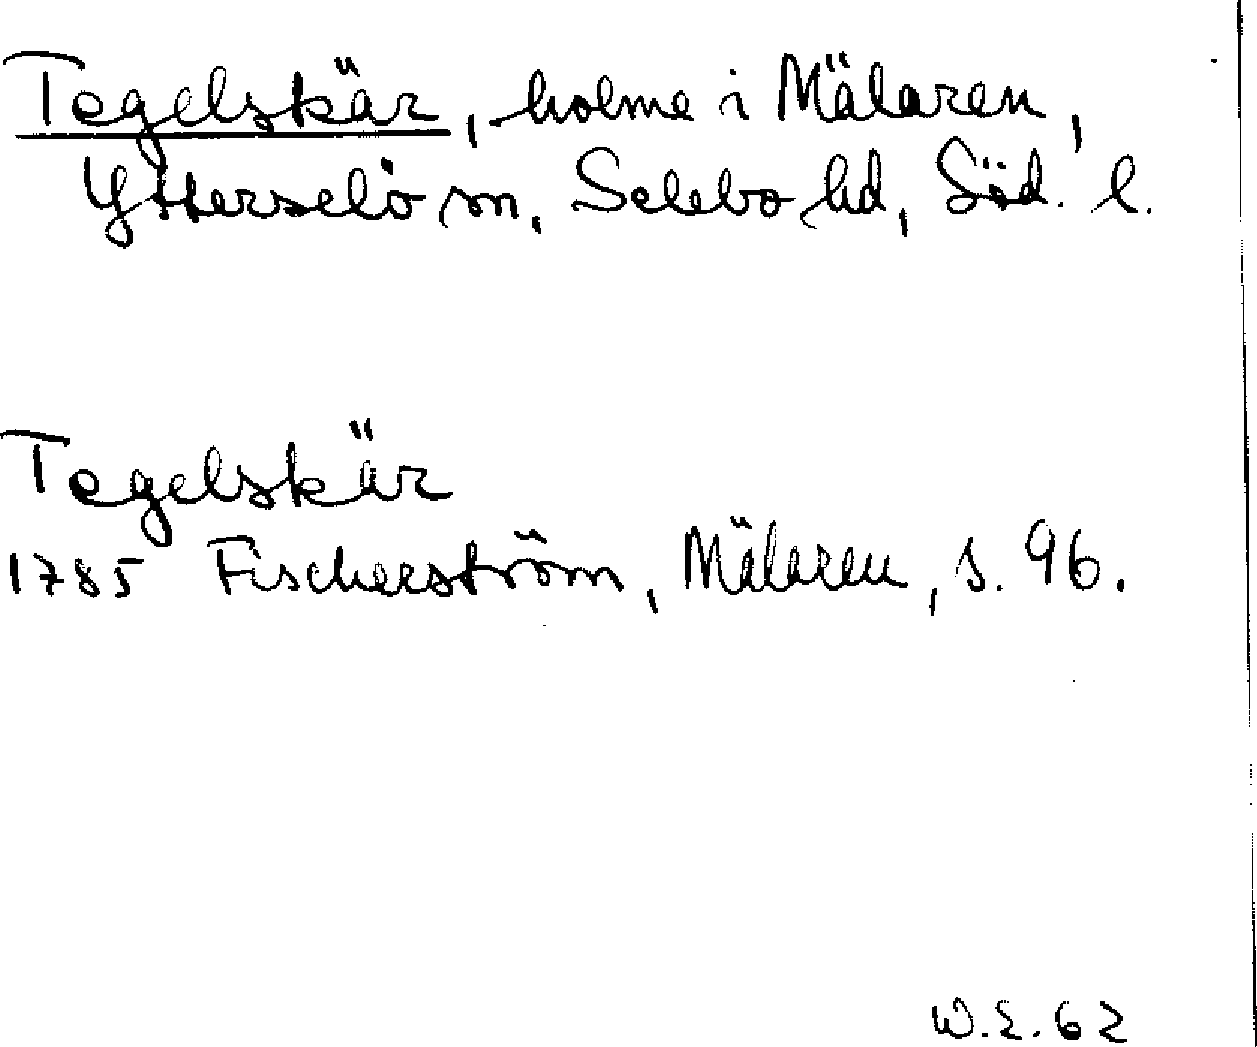 Tegelskär, holme i Mälaren,
Ytterselö sn, Selebo hd, Söd. l.
Tegelskär
1785 Fischerström, Mälaren, s. 96.
W.E. 62